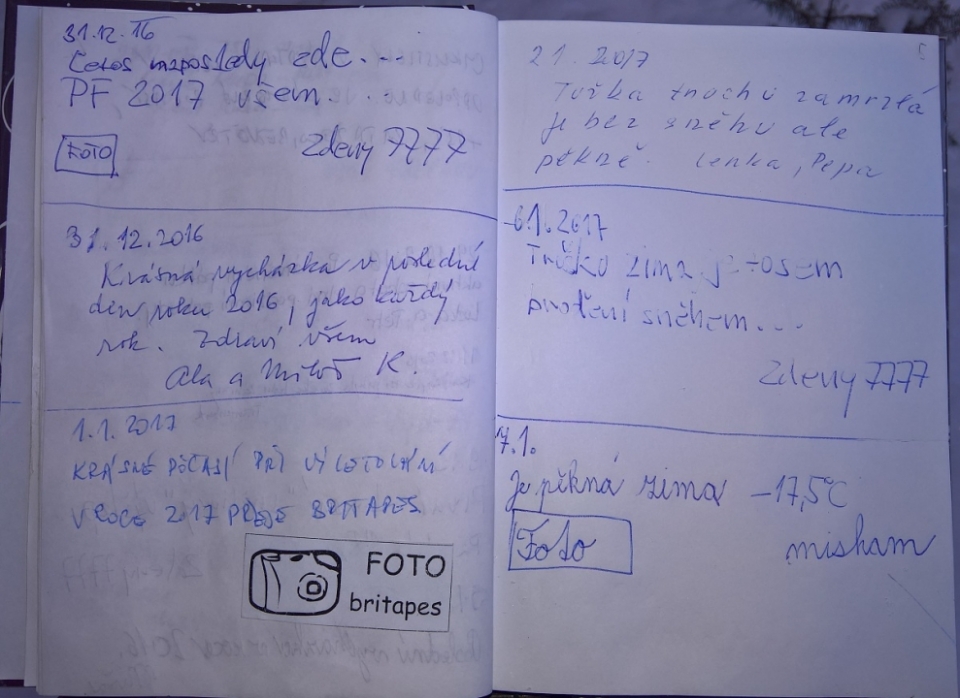 31.12.16
Letos naposledy zde....
PF 2017 všem...
FOTO
Zdeny 7777
31.12.2016
Krásná vycházka v poslední
den roku 2016, jako každý
rok. Zdraví všem
Ala a Miloš K.
1.1.2017
KRÁSNÉ POČASÍ PŘI VÝLETOVÁNÍ
V ROCE 2017 PŘEJE BRITAPES
FOTO
britapes
2 1. 2017
Tužka trochu zamrzlá
je bez sněhu ale
pěkně. Lenka, Pepa
6.1.2017
zima
brodění sněhem...
Zdeny 7777
7.1.
Je pěkná zima -17,5°C
Foto
misham